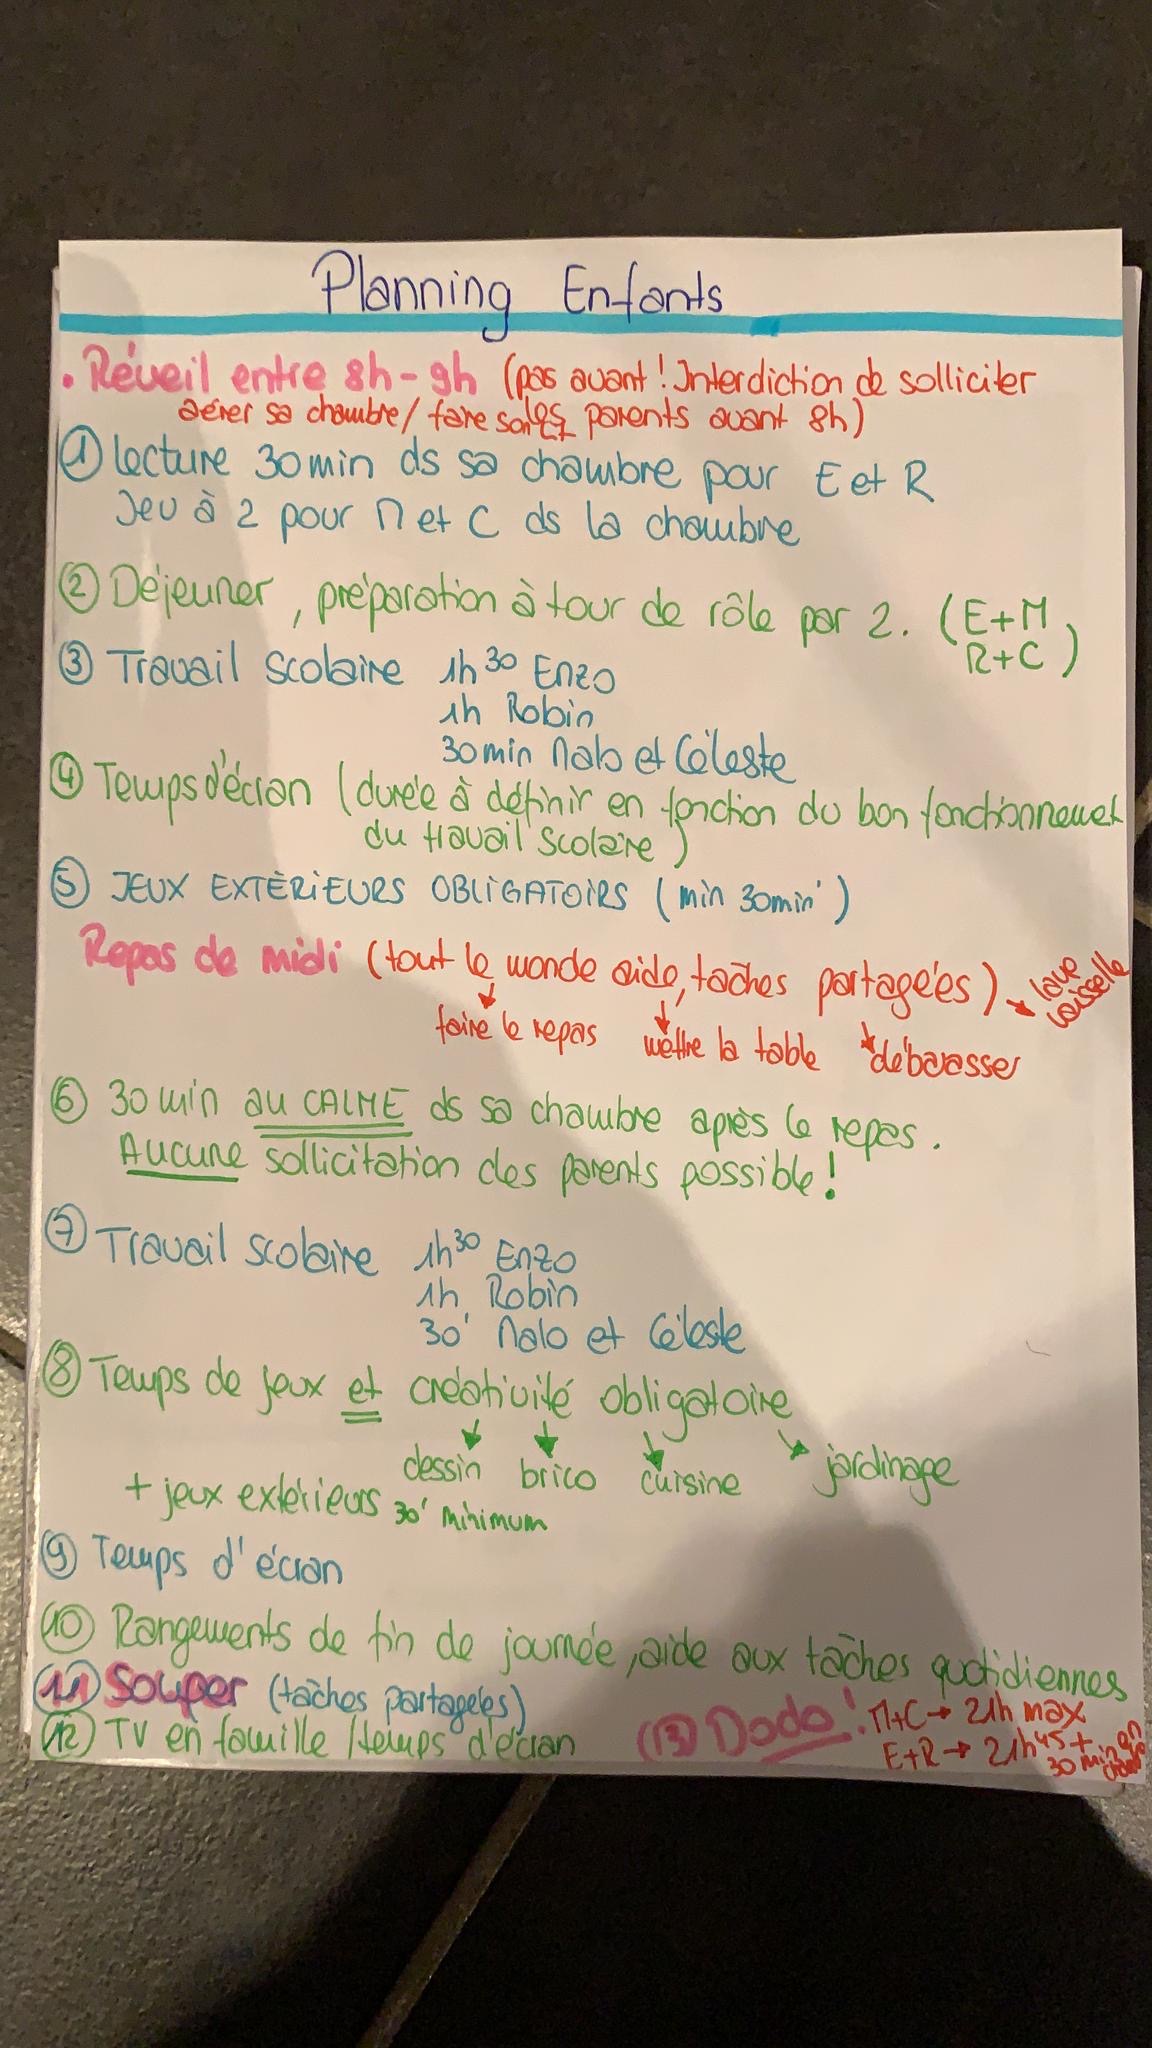 Planning Enfants
. Réveil entre 8h - 9h (pas avant ! Interdiction de solliciter
aérer sa chambre / faire son les parents avant 8h)
① lecture 30 min ds sa chambre pour E et R
Jeu à 2 pour N et C ds la chambre
② Déjeuner, préparation à tour de rôle par 2. (E+M
R+C)
③ Travail scolaire 1h30 Enzo
1h Robin
30 min Nalo et Céleste
④ Temps d'écran (durée à définir en fonction du bon fonctionnement
du travail scolaire)
⑤ JEUX EXTÈRIEURS OBLIGATOIRS (min 30min')
Repas de midi (tout le monde aide, tâches partagées) → lave vaisselle
↓ faire le repas ↓ mettre la table ↓ débarasser
⑥ 30 min au CALME ds sa chambre après le repas.
AUCUNE sollicitation des parents possible !
⑦ Travail scolaire 1h30 Enzo
1h Robin
30' Nalo et Céleste
⑧ Temps de jeux et créativité obligatoire
↓ dessin ↓ brico ↓ cuisine → jardinage
+ jeux extérieurs 30' minimum
⑨ Temps d'écran
⑩ Rangements de fin de journée, aide aux tâches quotidiennes
⑪ Souper (tâches partagées)
⑫ TV en famille / temps d'écran
(13) Dodo ! N+C → 21h max
E+R → 21h45 + 30 min en